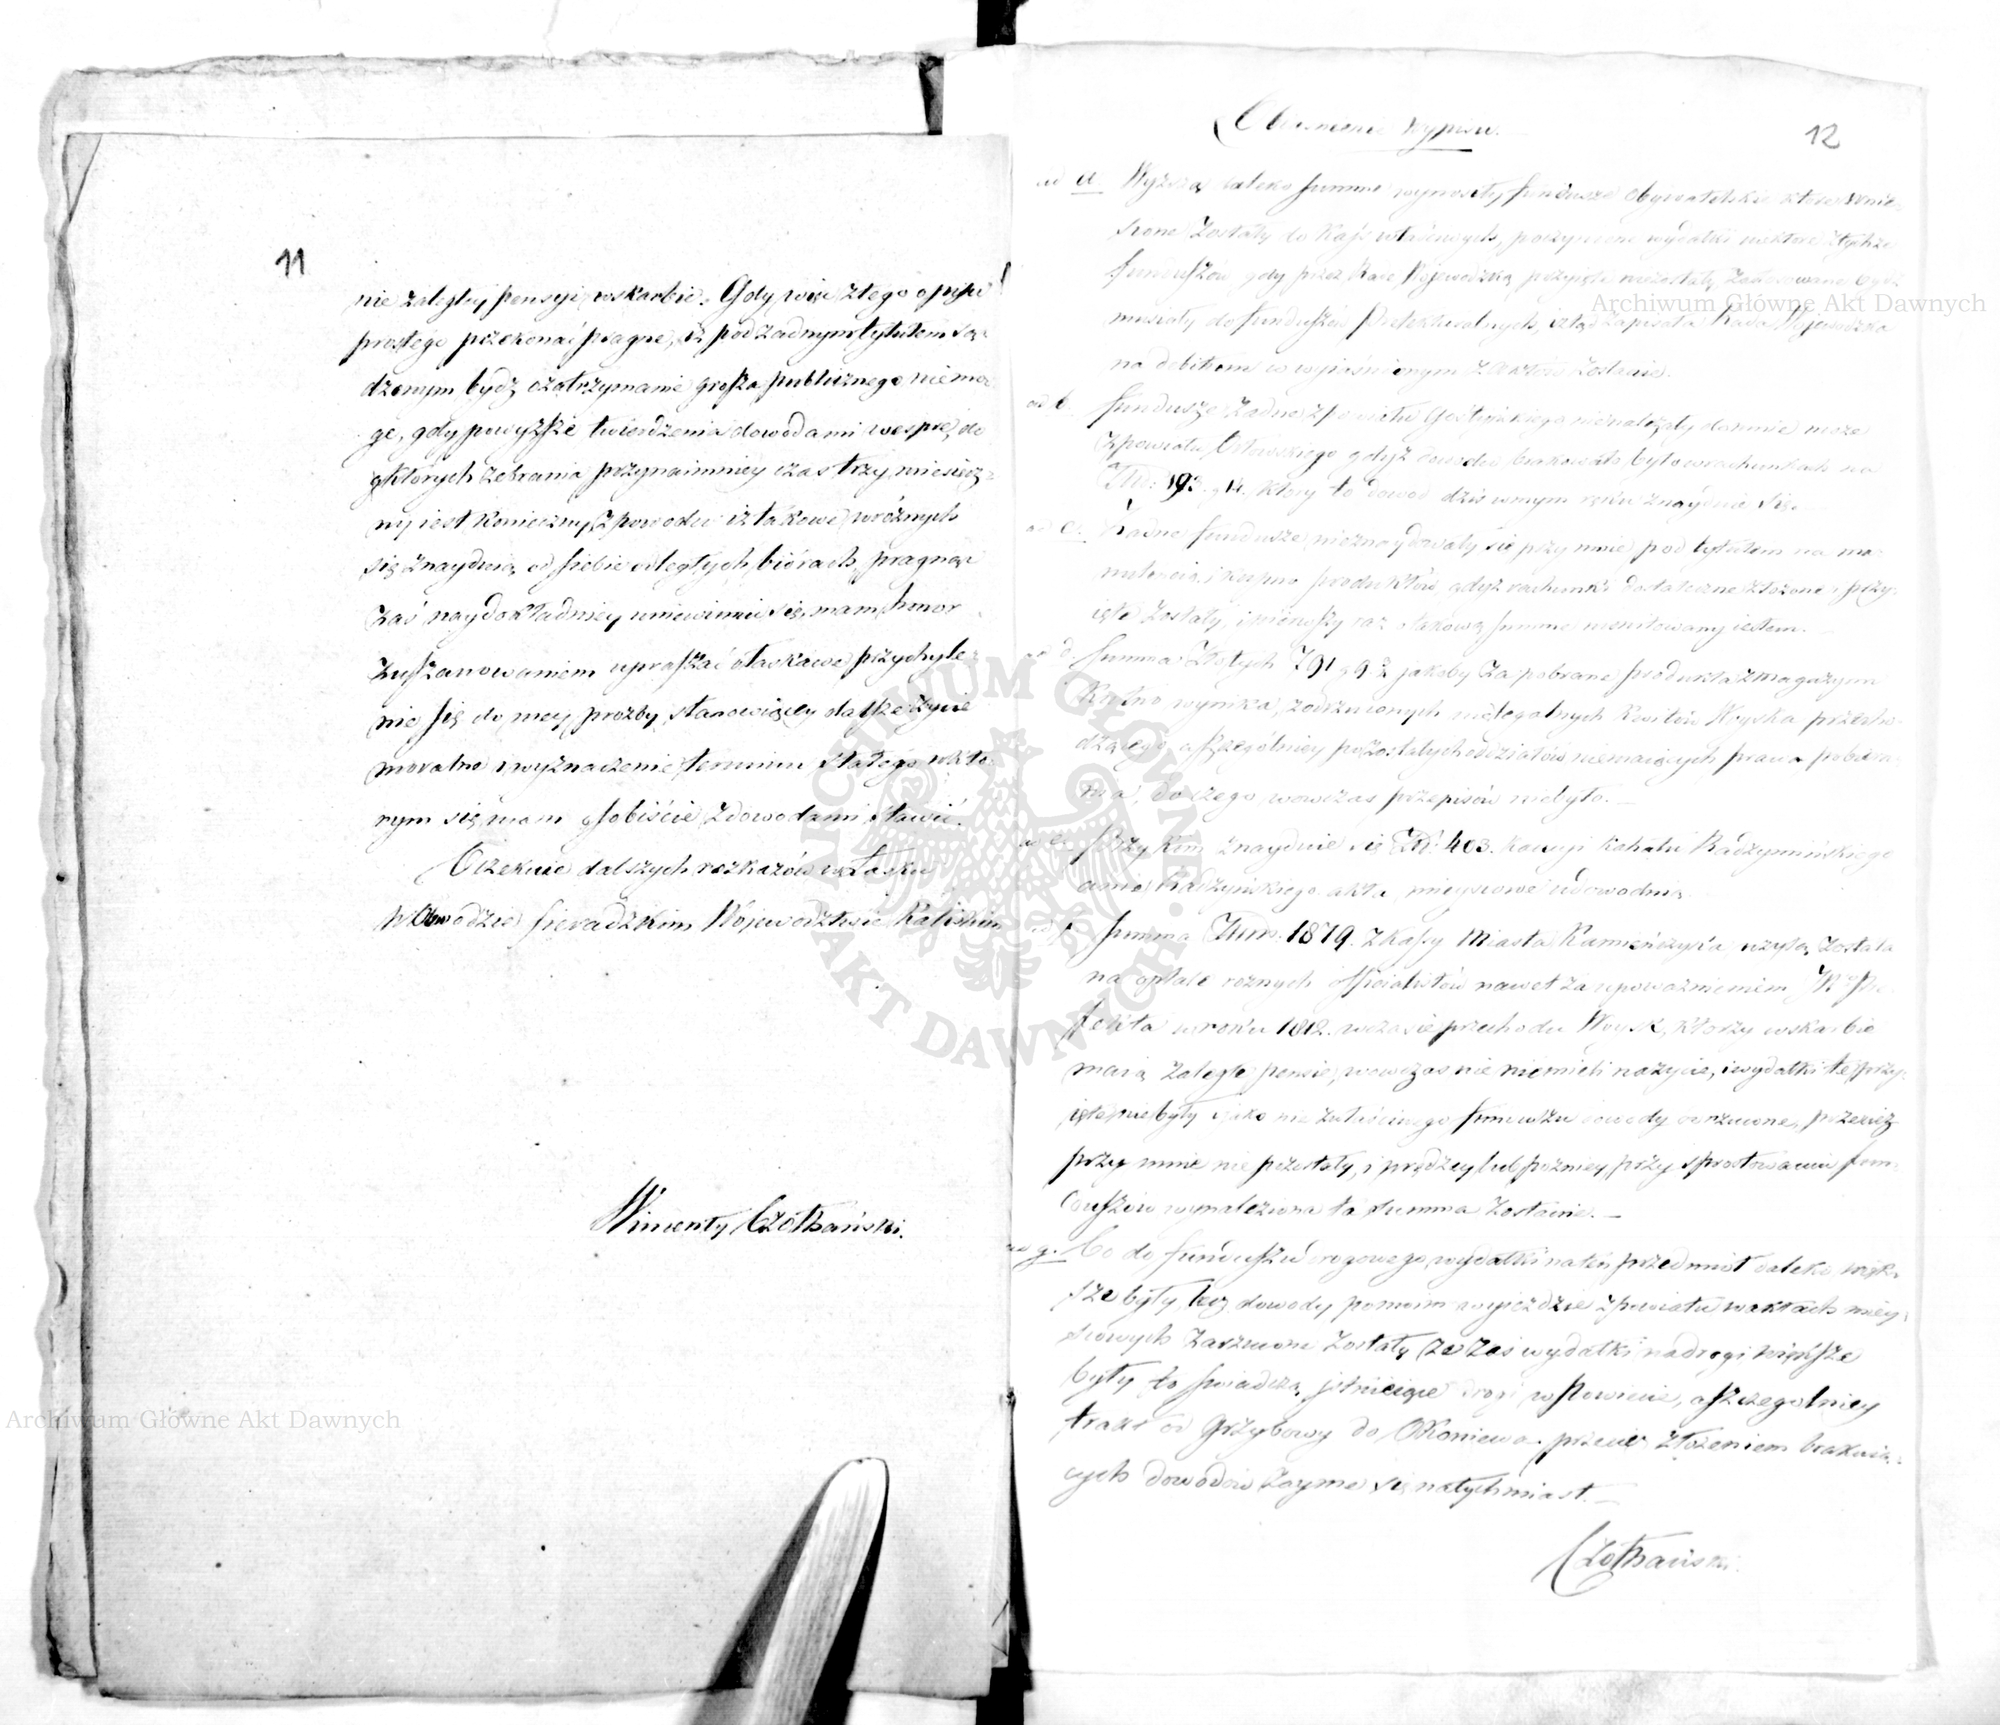 11
nie zaległéy pensyi w skarbie. Gdy więc z tego opisu
prostego przekonać pragnę, iż pod żadnym tytułem są-
dzonym bydź o zatrzymanie grosza publicznego nie mo-
gę, gdy powyższe twierdzenia dowodami wesprę, do
których zebrania przynaimniey czas trzy miesięcz-
ny iest konieczny, z powodu iż takowe w różnych
się znayduią od siebie odległych biórach, pragnąc
zaś naydokładniey uniewinnić się, mam honor
z uszanowaniem upraszać o łaskawe przychyle-
nie się do mey prożby, stanowiącey dalsze życie
moralne i wyznaczenie terminu stałego w któ-
rym się mam osobiście z dowodami stawić.
Oczekuie dalszych rozkazów w Łasku
w Obwodzie Sieradzkim Wojewodztwie Kaliskim
Wincenty Czołchański.
12
wypisu.
ad a Wyższą daleko summę wynosiły fundusze Obywatelskie które wnie-
sione zostały do Kass właściwych, poczynione wydatki niektóre z tychże
funduszów gdy przez Kassę Wojewodzką przyięte niezostały,
musiały do funduszów Prefekturalnych, ztąd zapisała Kassa Wojewodzka
na debitum co wyiaśnionym z aktów zostanie.
ad b. Fundusze żadne z powiatu Gostyńskiego nienależały do mnie może
z powiatu gdyż dowodu brakowało było w rachunkach na
193. g 14. który to dowód dziś w mym ręku znayduie się.
ad c. Żadne fundusze nieznaydowały się przy mnie pod tytułem na ma-
i kupno produktów gdyż rachunki dostateczne złożone i przy-
ięte zostały, i pierwszy raz o takową summę monitowany iestem.
ad d. Summa Złotych 791 g 9 jakoby za pobrane produkta z magazynu
wynika, z odrzuconych nielegalnych kwitów Woyska przecho-
dzącego, a szczególniey pozostałych oddziałów niemaiących prawa pobiera-
nia, do czego wówczas przepisów niebyło.
ad e. Przy kim znayduie się 403. Kahału Radzymińskiego
Radzyńskiego akta mieyscowe udowodnią.
ad f. Summa 1879. z Kassy Miasta Kamieńczyka użytą została
na opłatę rożnych officialistów nawet za upoważnieniem
fekta w roku 1812. w czasie przechodu Woysk, którzy w skarbie
maią zaległe pensie, wówczas nic niemieli na życie, i wydatki te przy-
ięte niebyły i jako nie z właściwego funduszu dowody odrzucone, przecież
przy mnie nie pozostały, i prędzey lub pożniey przy sprostowaniu fun-
duszów wynaleziona ta summa zostanie.
ad g. Co do funduszu drogowego wydatki na ten przedmiot daleko więk-
sze były lecz dowody po moim wyieździe z powiatu w aktach miey-
scowych zarzucone zostały, że zaś wydatki na drogi większe
były to świadczą istnieiące drogi w Powiecie, a szczegolniey
trakt od Grzybowy do Okoniewa. przecież złożeniem brakuią-
cych dowodów zaymę się natychmiast.
Czołchański.
Archiwum Główne Akt Dawnych
Archiwum Główne Akt Dawnych
ARCHIWUM GŁÓWNE AKT DAWNYCH